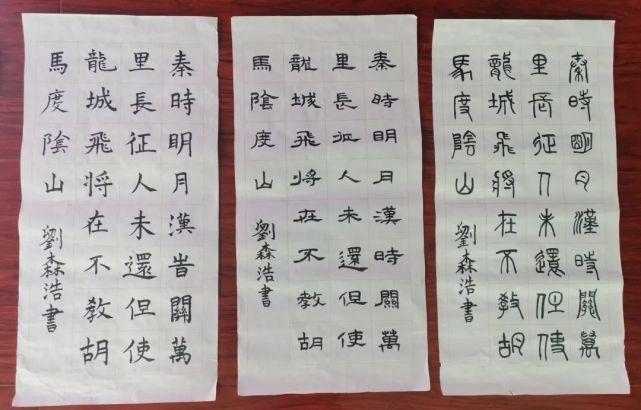 秦時明月漢旹關萬
里長征人未還但使
龍城飛将在不教胡
馬度陰山
劉森浩書
秦時明月漢時關萬
里長征人未還但使
龍城飛将在不教胡
馬陰度山
劉森浩書
秦時明月漢時關萬
里長征人未還但使
龍城飛將在不教胡
馬度陰山
劉森浩書